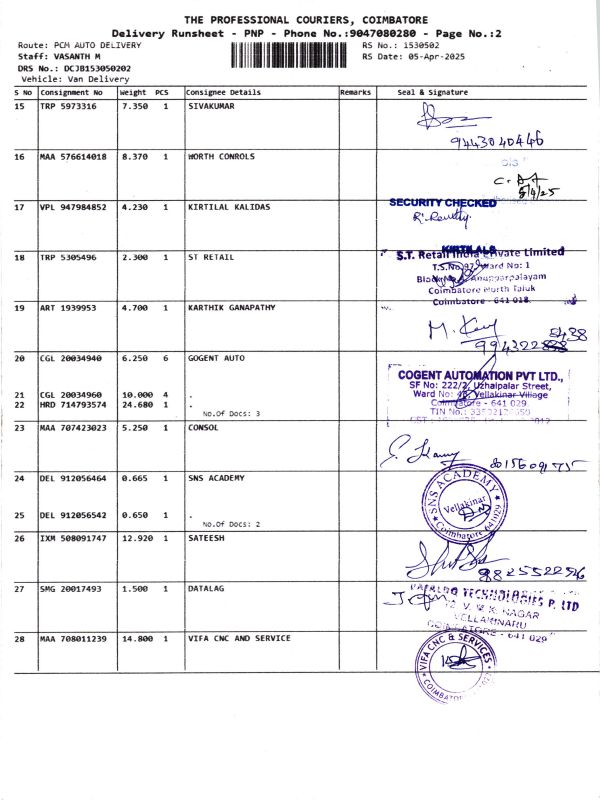 THE PROFESSIONAL COURIERS, COIMBATORE
Delivery Runsheet - PNP - Phone No.:9047080280 - Page No.:2
Route: PCM AUTO DELIVERY RS No.: 1530502
Staff: VASANTH M RS Date: 05-Apr-2025
DRS No.: DCJB153050202
Vehicle: Van Delivery
S No Consignment No Weight PCS Consignee Details Remarks Seal & Signature
15 TRP 5973316 7.350 1 SIVAKUMAR
9443040446
16 MAA 576614018 8.370 1 WORTH CONROLS
5/4/25
17 VPL 947984852 4.230 1 KIRTILAL KALIDAS
SECURITY CHECKED
KIRTILALS
18 TRP 5305496 2.300 1 ST RETAIL
S.T. Retail India Private Limited
T.S.No. Ward No: 1
Coimbatore North Taluk
Coimbatore - 641 018.
19 ART 1939953 4.700 1 KARTHIK GANAPATHY
20 CGL 20034940 6.250 6 GOGENT AUTO
COGENT AUTOMATION PVT LTD.,
SF No: 222/2, Uzhalpalar Street,
Ward No: Vellakinar Village
Coimbatore - 641 029.
21 CGL 20034960 10.000 4 .
22 HRD 714793574 24.680 1 .
No.Of Docs: 3
23 MAA 707423023 5.250 1 CONSOL
8015609175
24 DEL 912056464 0.665 1 SNS ACADEMY
SNS ACADEMY
Vellakinar
Coimbatore 641029
25 DEL 912056542 0.650 1 .
No.Of Docs: 2
26 IXM 508091747 12.920 1 SATEESH
27 SMG 20017493 1.500 1 DATALAG
TECHNOLOGIES P. LTD
V. M. K. NAGAR
VELLAKINARU
COIMBATORE - 641 029
28 MAA 708011239 14.800 1 VIFA CNC AND SERVICE
VIFA CNC & SERVICES
COIMBATORE